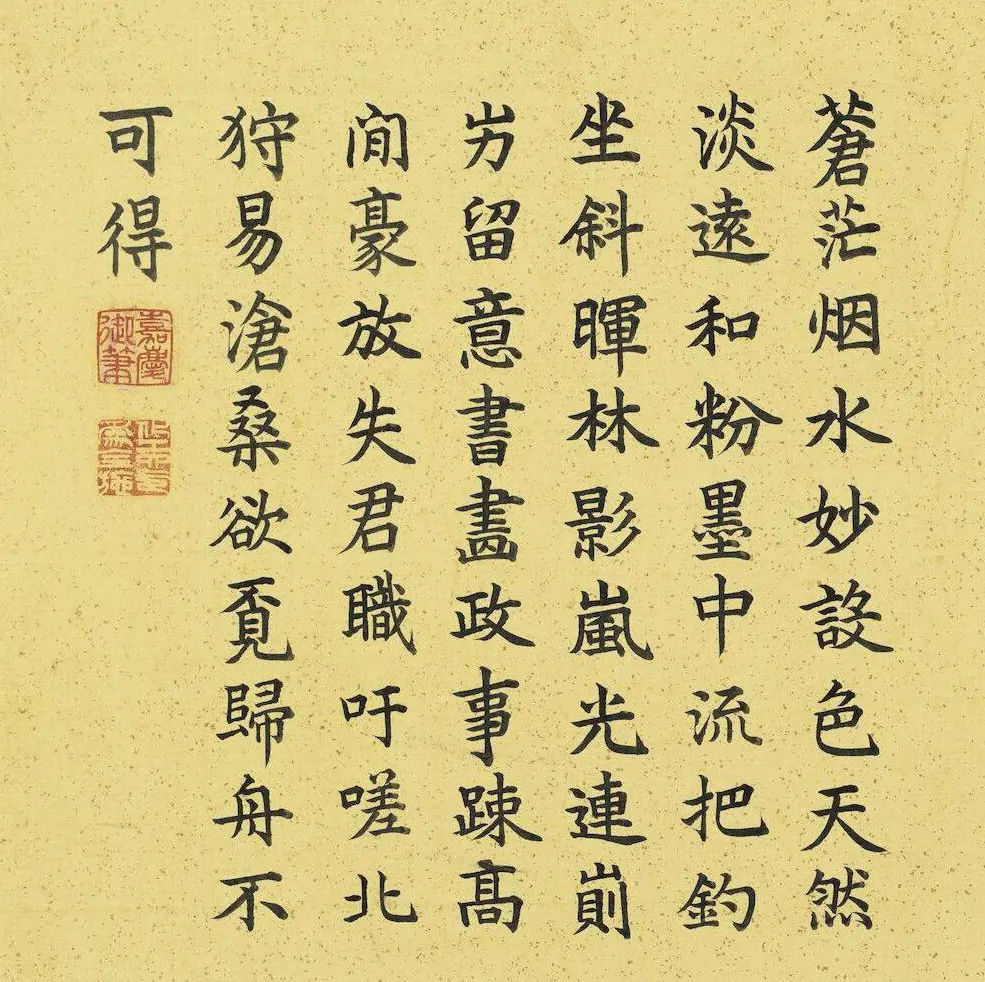 蒼茫烟水妙設色天然
淡遠和粉墨中流把釣
坐斜暉林影嵐光連崱
屴留意書畫政事踈髙
閒豪放失君職吁嗟北
狩易滄桑欲覔歸舟不
可得
嘉慶御筆